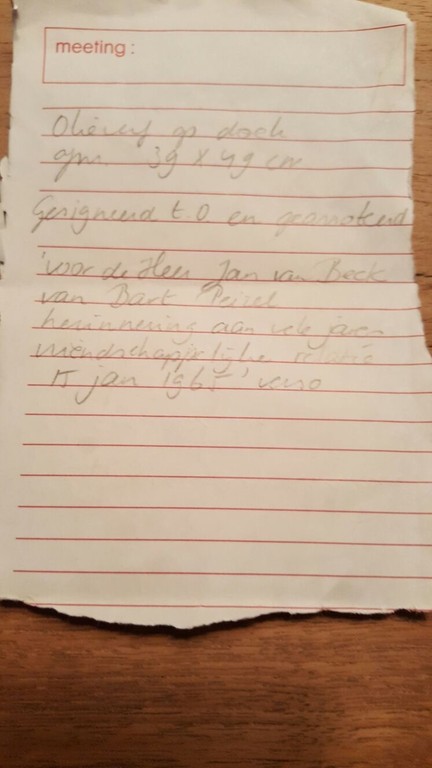 meeting:
Olieverf op doek
afm. 39 x 49 cm
Gesigneerd t.O en geannoteerd
'voor de Heer Jan van Beek
van Bart Peizel
herinnering aan vele jaren
vriendschappelijke relatie
jan 1965' verso